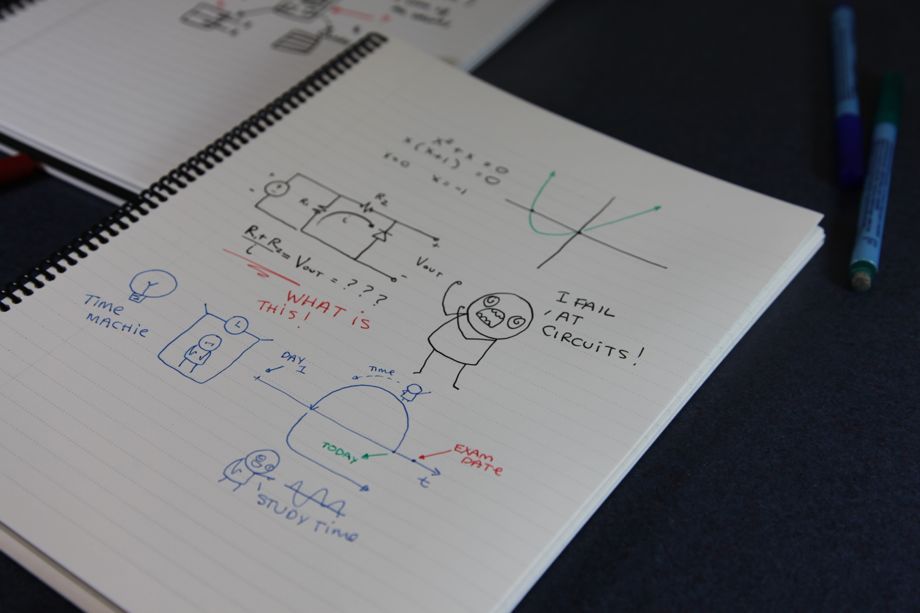 x² + x = 0
x(x+1) = 0
x=0 x=-1
R₁
R₂
i
Vout
R₁+R₂ = Vout = ???
i
WHAT IS
THIS!
I FAIL
AT
CIRCUITS!
TIME
MACHIE
DAY
1
TIME
TODAY
EXAM
DATE
t
STUDY TIME